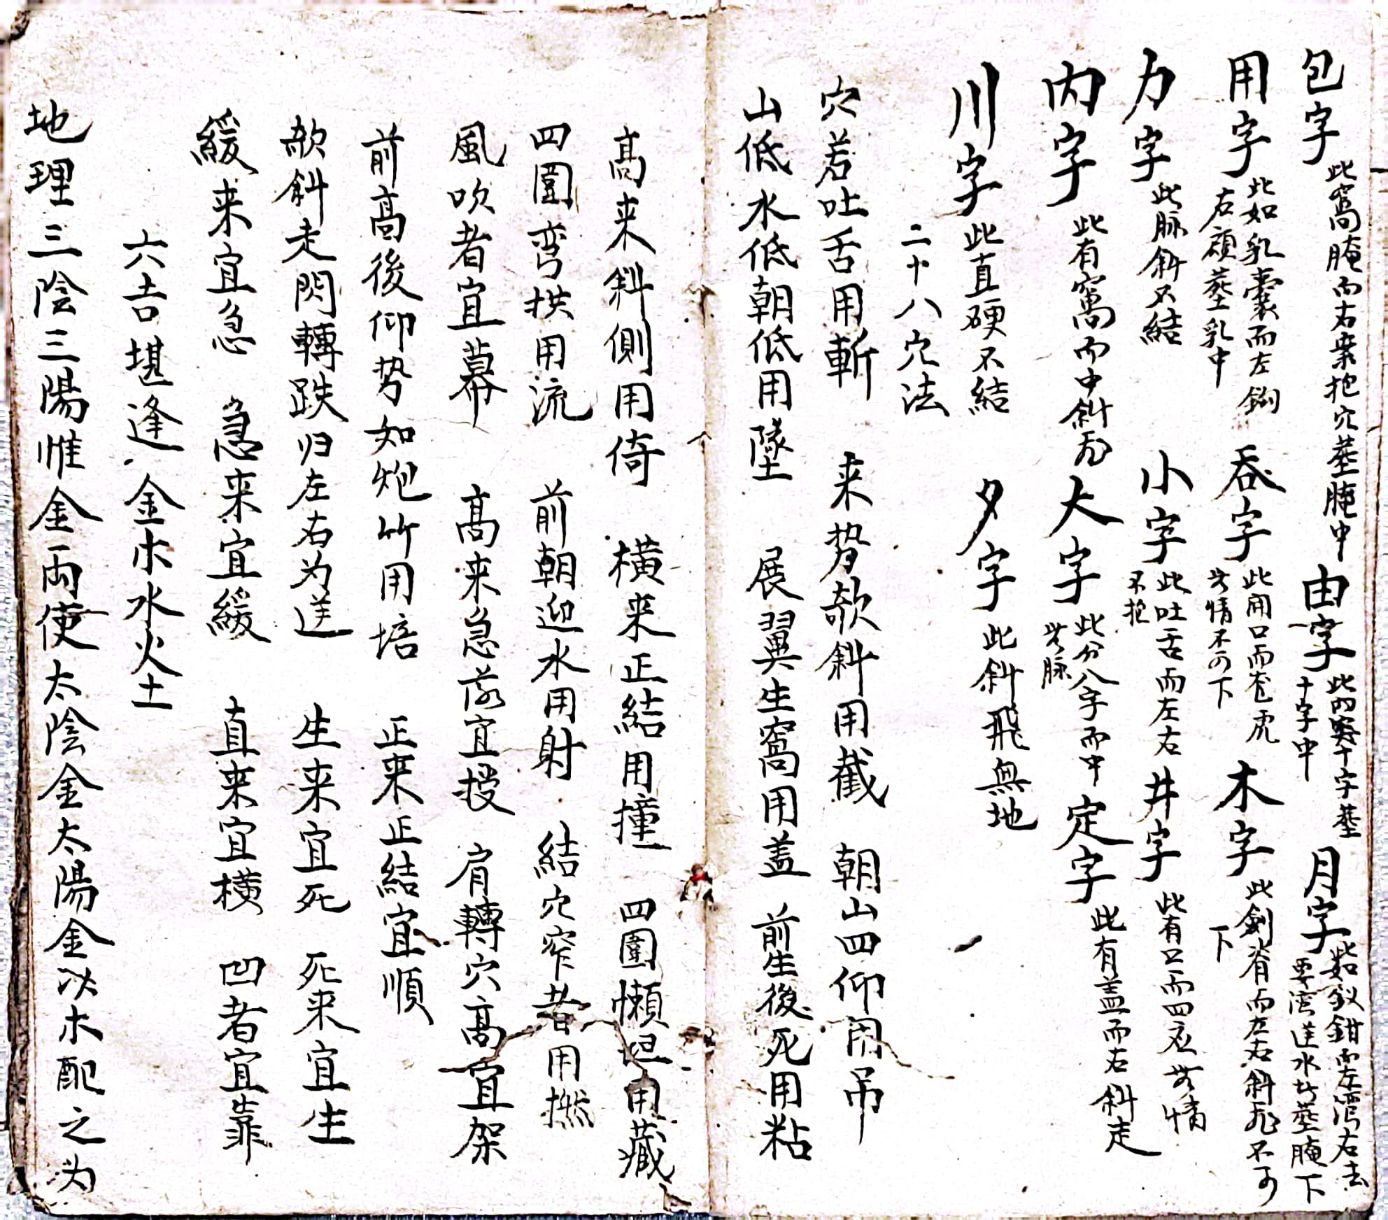 包字 此窩腌而右來抱穴塟腌中 由字 此内要十字塟十字中 月字 此如釵鉗而左湾右去要湾逆水方塟腌下
用字 此如乳囊而左鉤右顧塟乳中 吞字 此開口而右虎无情不可下 木字 此劍脊而左右斜飛不可下
力字 此脉斜不結 小字 此吐舌而左右不抱 井字 此有口而四应无情
内字 此有窩而中斜飛 大字 此分八字而中无脉 定字 此有盖而右斜走
川字 此直硬不結 夕字 此斜飛無地
二十八穴法
穴若吐舌用斬 来势欹斜用截 朝山四仰用吊
山低水低朝低用墜 展翼生窩用盖 前生後死用粘
高来斜側用倚 横来正結用撞 四圍懶坦用藏
四圍弯拱用流 前朝迎水用射 結穴窄者用撚
風吹者宜幕 高来急落宜授 肩轉穴高宜架
前高後仰势如炮竹用培 正来正結宜順
欹斜走閃轉跌归左右为逆 生来宜死 死来宜生
緩来宜急 急来宜緩 直来宜横 凹者宜靠
六吉堪逢金木水火土
地理三陰三陽惟金兩使太陰金太陽金以木配之为